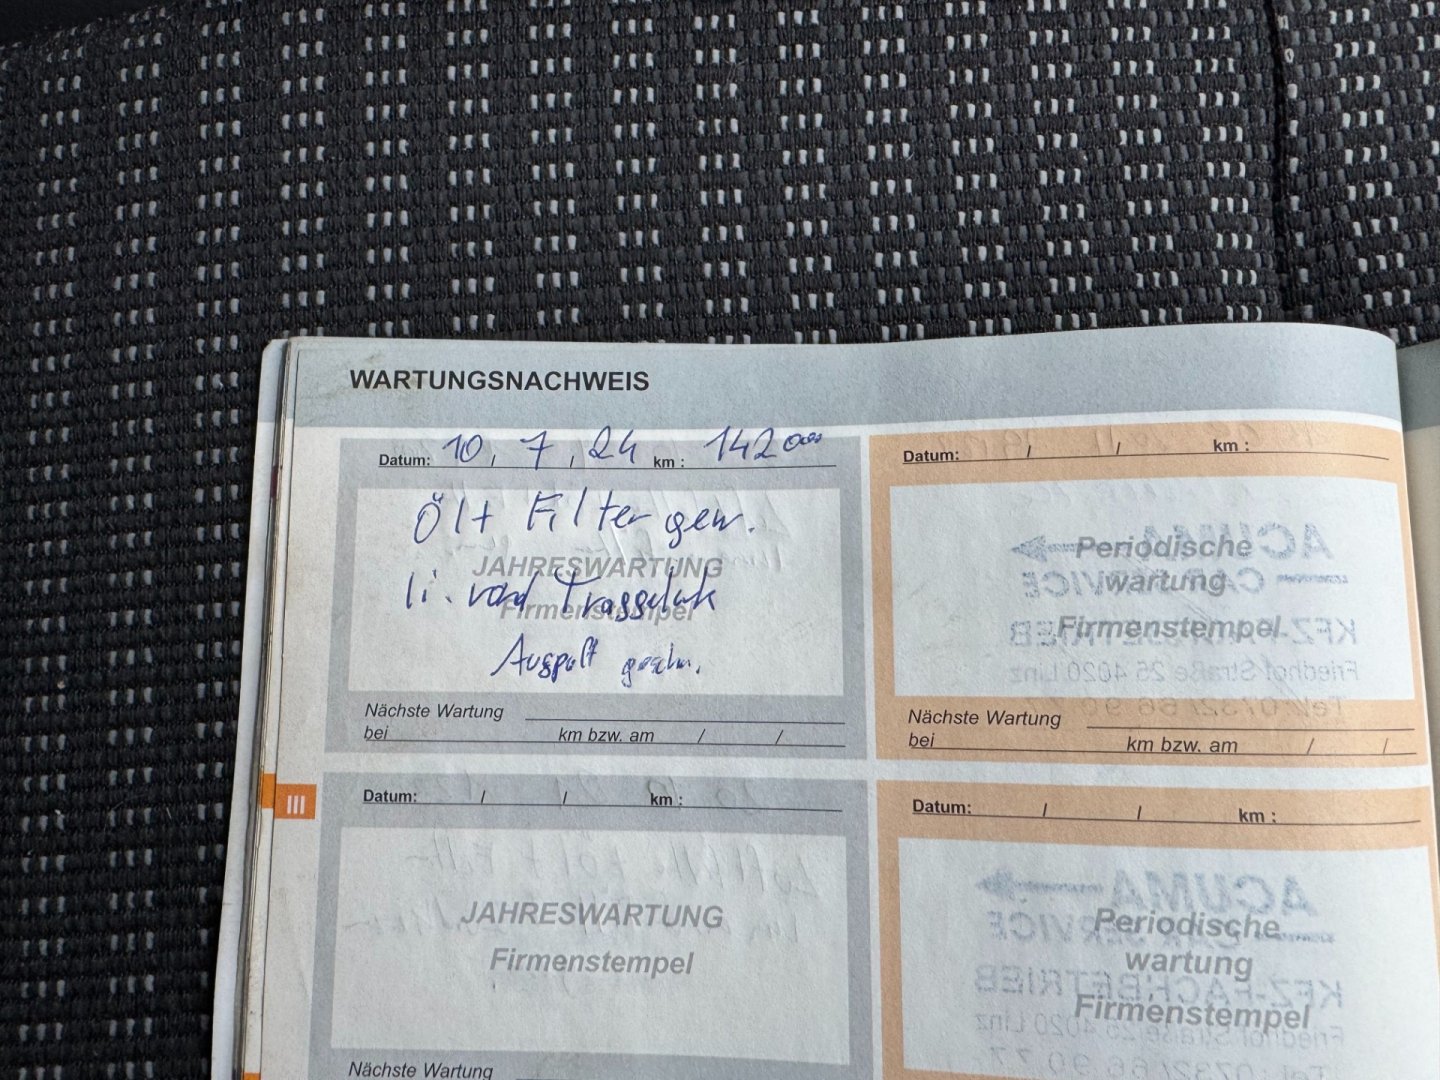 WARTUNGSNACHWEIS
Datum: 10 / 7 / 24 km : 142000
Öl + Filter gew.
JAHRESWARTUNG
li. vord Traggelenk
Firmenstempel
Auspuff geschw.
Nächste Wartung
bei km bzw. am / /
Datum: / / km :
Periodische
wartung
Firmenstempel
ACUMA
CAR SERVICE
KFZ-FACHBETRIEB
Friedhof Straße 25 4020 Linz
Tel: 0732/66 90
Nächste Wartung
bei km bzw. am / /
III
Datum: / / km :
JAHRESWARTUNG
Firmenstempel
Nächste Wartung
Datum: / / km :
Periodische
wartung
Firmenstempel
ACUMA
CAR SERVICE
KFZ-FACHBETRIEB
Friedhof Straße 25 4020 Linz
Tel: 0732/66 90 77